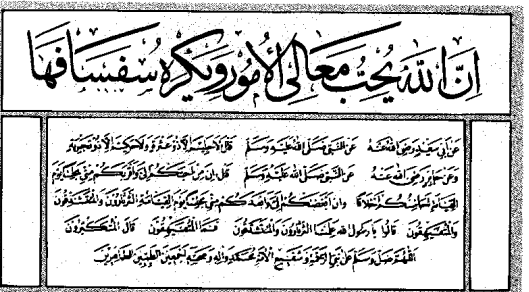 ان الله يحب معالي الأمور ويكره سفسافها
عن أبي سعيد رضي الله عنه عن النبي صلى الله عليه وسلم قال لا حليم إلا ذو عثرة ولا حكيم إلا ذو تجربة
وعن جابر رضي الله عنه عن النبي صلى الله عليه وسلم قال ان من أحبكم إلي وأقربكم مني مجلسا يوم
القيامة أحاسنكم أخلاقا وان أبغضكم إلي وأبعدكم مني مجلسا يوم القيامة الثرثارون والمتشدقون
والمتفيهقون قالوا يا رسول الله علمنا الثرثارون والمتشدقون فما المتفيهقون قال المتكبرون
اللهم صل وسلم على نبي الرحمة وشفيع الأمة محمد وآله وصحبه أجمعين الطيبين الطاهرين